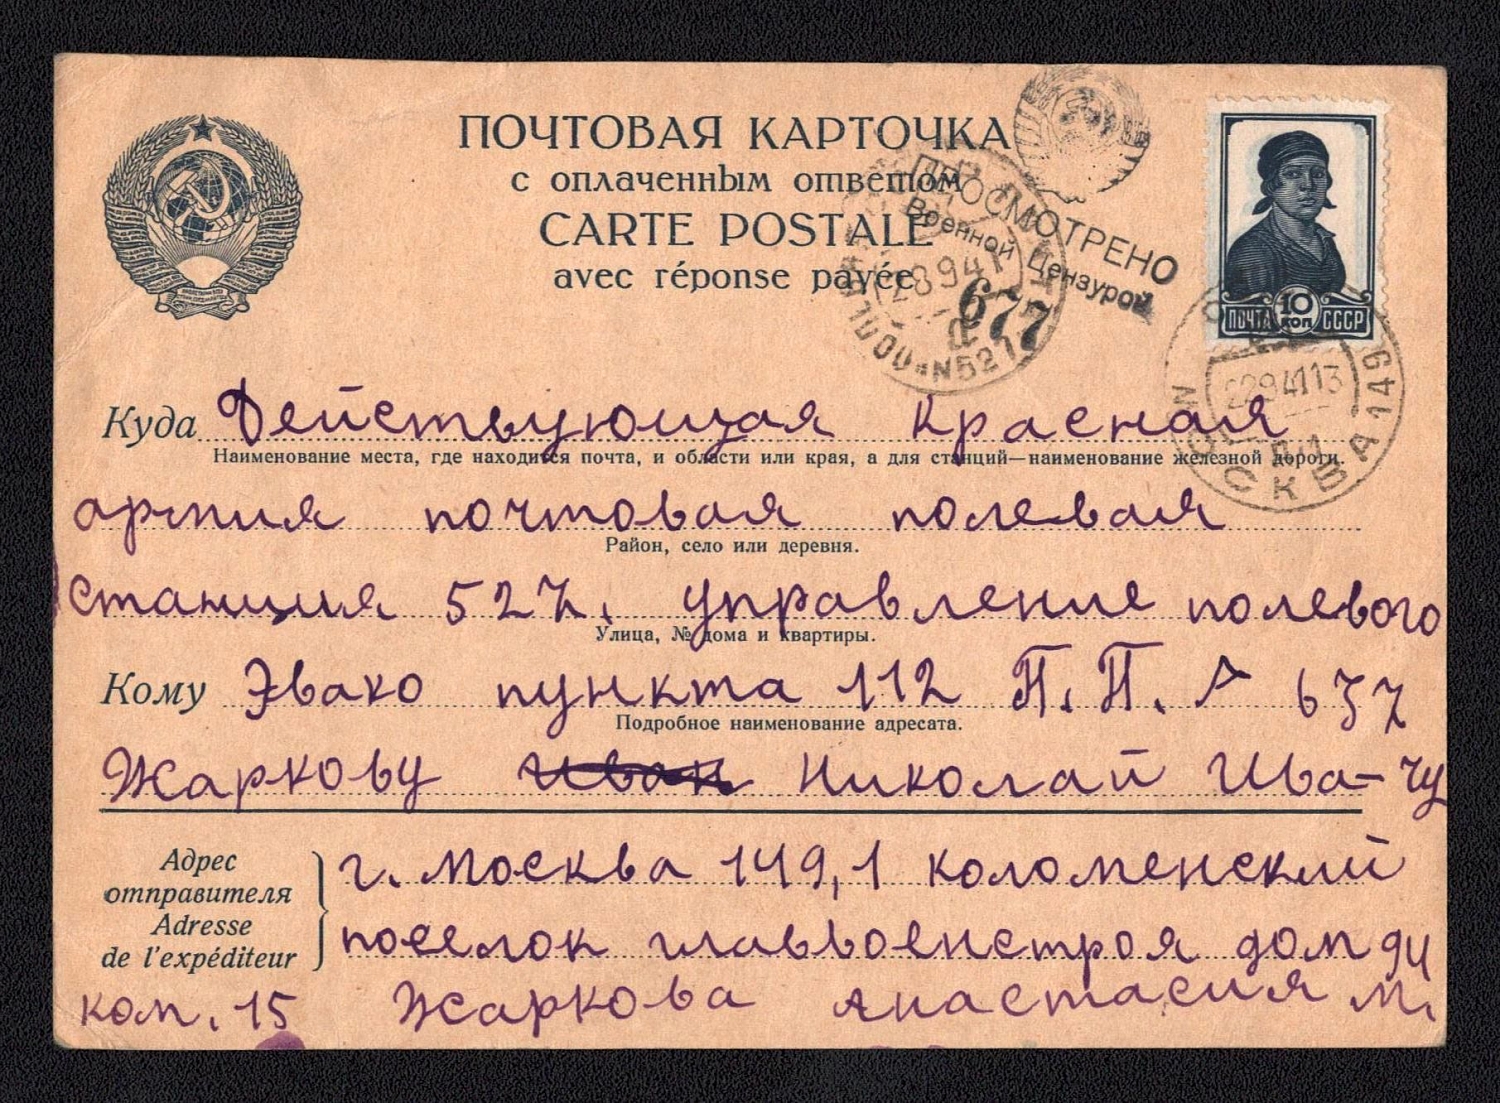 ПОЧТОВАЯ КАРТОЧКА
с оплаченным ответом
CARTE POSTALE
avec réponse payée
ПРОСМОТРЕНО
Военной Цензурой
677
ПОЧТА 10 КОП СССР
Куда Действующая Красная
Наименование места, где находится почта, и области или края, а для станций—наименование железной дороги.
армия почтовая полевая
Район, село или деревня.
станция 527. управление полевого
Улица, № дома и квартиры.
Кому Эвако пункта 112 П.П.
Подробное наименование адресата.
Жаркову Николай Ива-чу
Адрес отправителя
Adresse de l'expéditeur
г. Москва 149,1 коломенский
поселок главвоенстроя дом
ком. 15 Жаркова Анастасия М.
МОСКВА 149